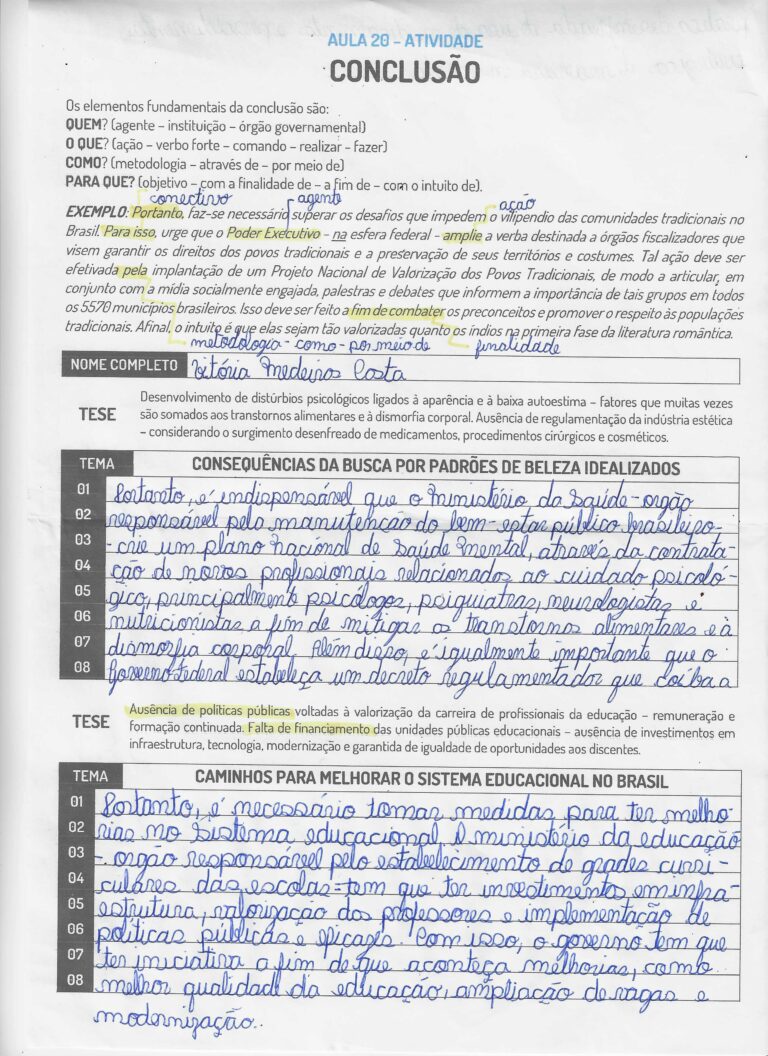 AULA 20 – ATIVIDADE
CONCLUSÃO
Os elementos fundamentais da conclusão são:
QUEM? (agente – instituição – órgão governamental)
O QUE? (ação – verbo forte – comando – realizar – fazer)
COMO? (metodologia – através de – por meio de)
PARA QUE? (objetivo – com a finalidade de – a fim de – com o intuito de).
conectivo agente ação
EXEMPLO: Portanto, faz-se necessário superar os desafios que impedem o vilipendio das comunidades tradicionais no
Brasil. Para isso, urge que o Poder Executivo – na esfera federal – amplie a verba destinada a órgãos fiscalizadores que
visem garantir os direitos dos povos tradicionais e a preservação de seus territórios e costumes. Tal ação deve ser
efetivada pela implantação de um Projeto Nacional de Valorização dos Povos Tradicionais, de modo a articular, em
conjunto com a mídia socialmente engajada, palestras e debates que informem a importância de tais grupos em todos
os 5570 municípios brasileiros. Isso deve ser feito a fim de combater os preconceitos e promover o respeito às populações
tradicionais. Afinal, o intuito é que elas sejam tão valorizadas quanto os índios na primeira fase da literatura romântica.
metodologia - como - por meio de finalidade
NOME COMPLETO Vitória Medeiros Costa
TESE
Desenvolvimento de distúrbios psicológicos ligados à aparência e à baixa autoestima – fatores que muitas vezes
são somados aos transtornos alimentares e à dismorfia corporal. Ausência de regulamentação da indústria estética
– considerando o surgimento desenfreado de medicamentos, procedimentos cirúrgicos e cosméticos.
TEMA CONSEQUÊNCIAS DA BUSCA POR PADRÕES DE BELEZA IDEALIZADOS
01 Portanto, é indispensável que o Ministério da Saúde - orgão
02 responsável pela manutenção do bem-estar público brasileiro -
03 - crie um plano nacional de Saúde Mental, através da contrata-
04 ção de novos profissionais relacionados ao cuidado psicoló-
05 gico, principalmente psicólogos, psiquiatras, neurologistas e
06 nutricionistas a fim de mitigar os transtornos alimentares e à
07 dismorfia corporal. Além disso, é igualmente importante que o
08 Governo Federal estabeleça um decreto regulamentador que coíba a
TESE
Ausência de políticas públicas voltadas à valorização da carreira de profissionais da educação – remuneração e
formação continuada. Falta de financiamento das unidades públicas educacionais – ausência de investimentos em
infraestrutura, tecnologia, modernização e garantida de igualdade de oportunidades aos discentes.
TEMA CAMINHOS PARA MELHORAR O SISTEMA EDUCACIONAL NO BRASIL
01 Portanto, é necessário tomar medidas para ter melho-
02 rias no sistema educacional. O ministério da educação
03 - orgão responsável pelo estabelecimento de grades curri-
04 culares das escolas - tem que ter investimentos em infra-
05 estrutura, valorização dos professores e implementação de
06 políticas públicas e eficazes. Com isso, o governo tem que
07 ter iniciativa a fim de que aconteça melhorias, como
08 melhor qualidade da educação, ampliação de vagas e
modernização.